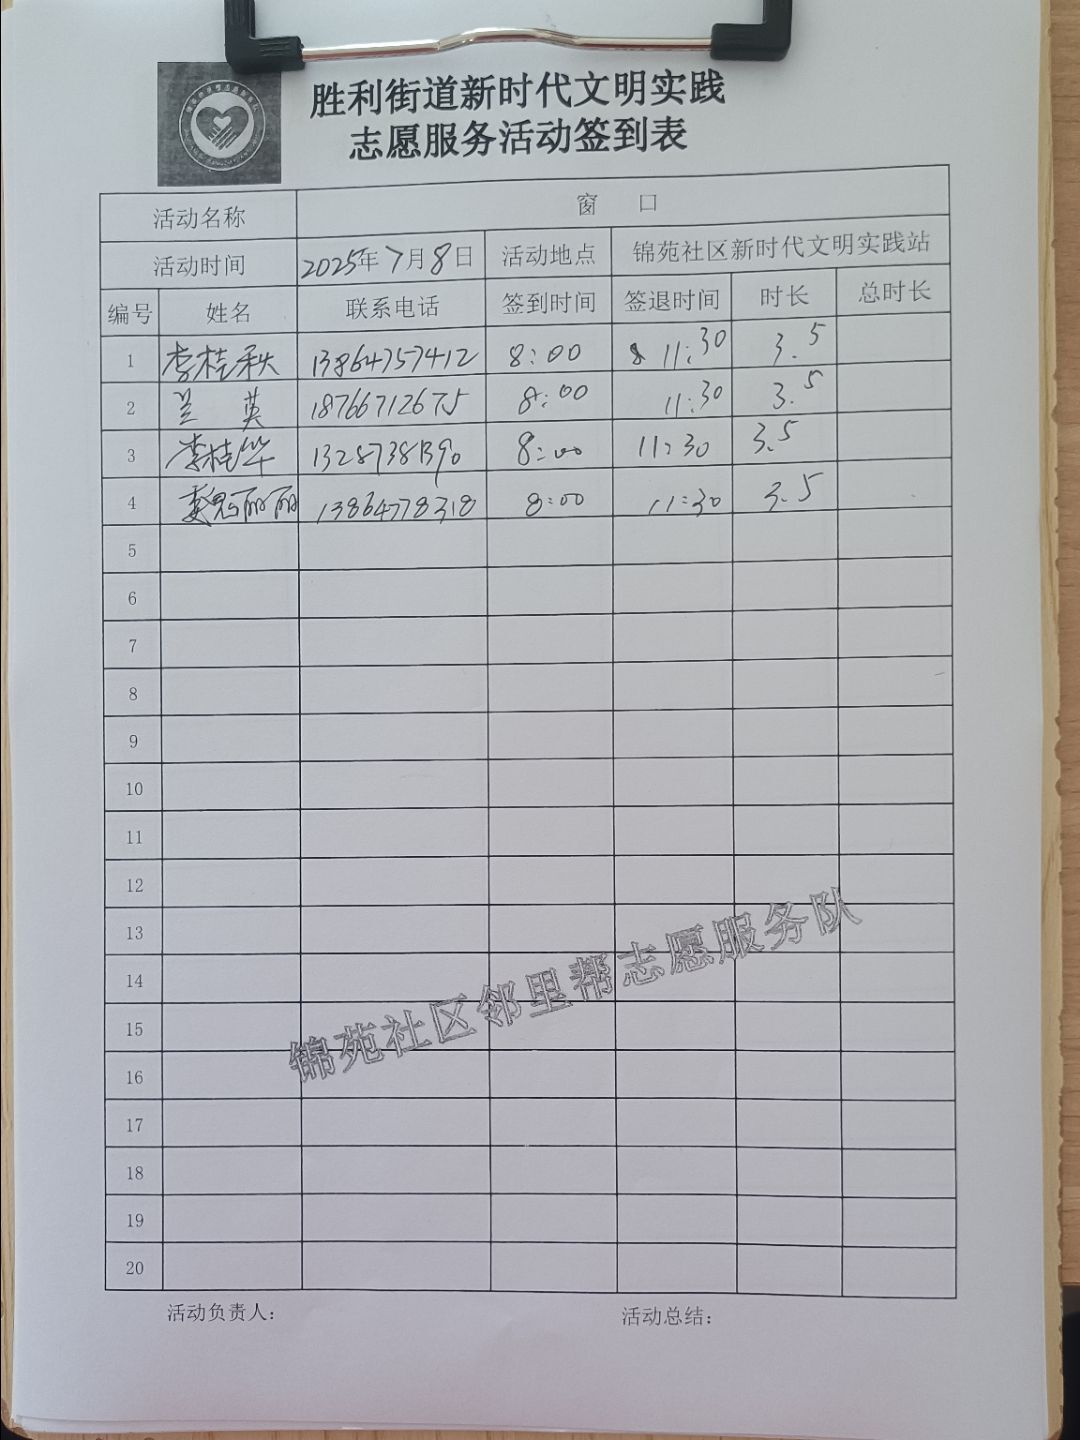 胜利街道新时代文明实践
志愿服务活动签到表
活动名称 窗 口
活动时间 2025年7月8日 活动地点 锦苑社区新时代文明实践站
编号 姓名 联系电话 签到时间 签退时间 时长 总时长
1 李桂秋 13864757412 8:00 11:30 3.5
2 兰英 18766712675 8:00 11:30 3.5
3 李桂华 13287381390 8:00 11:30 3.5
4 魏丽丽 13864778318 8:00 11:30 3.5
5
6
7
8
9
10
11
12
13
14
15
16
17
18
19
20
锦苑社区邻里帮志愿服务队
活动负责人: 活动总结: